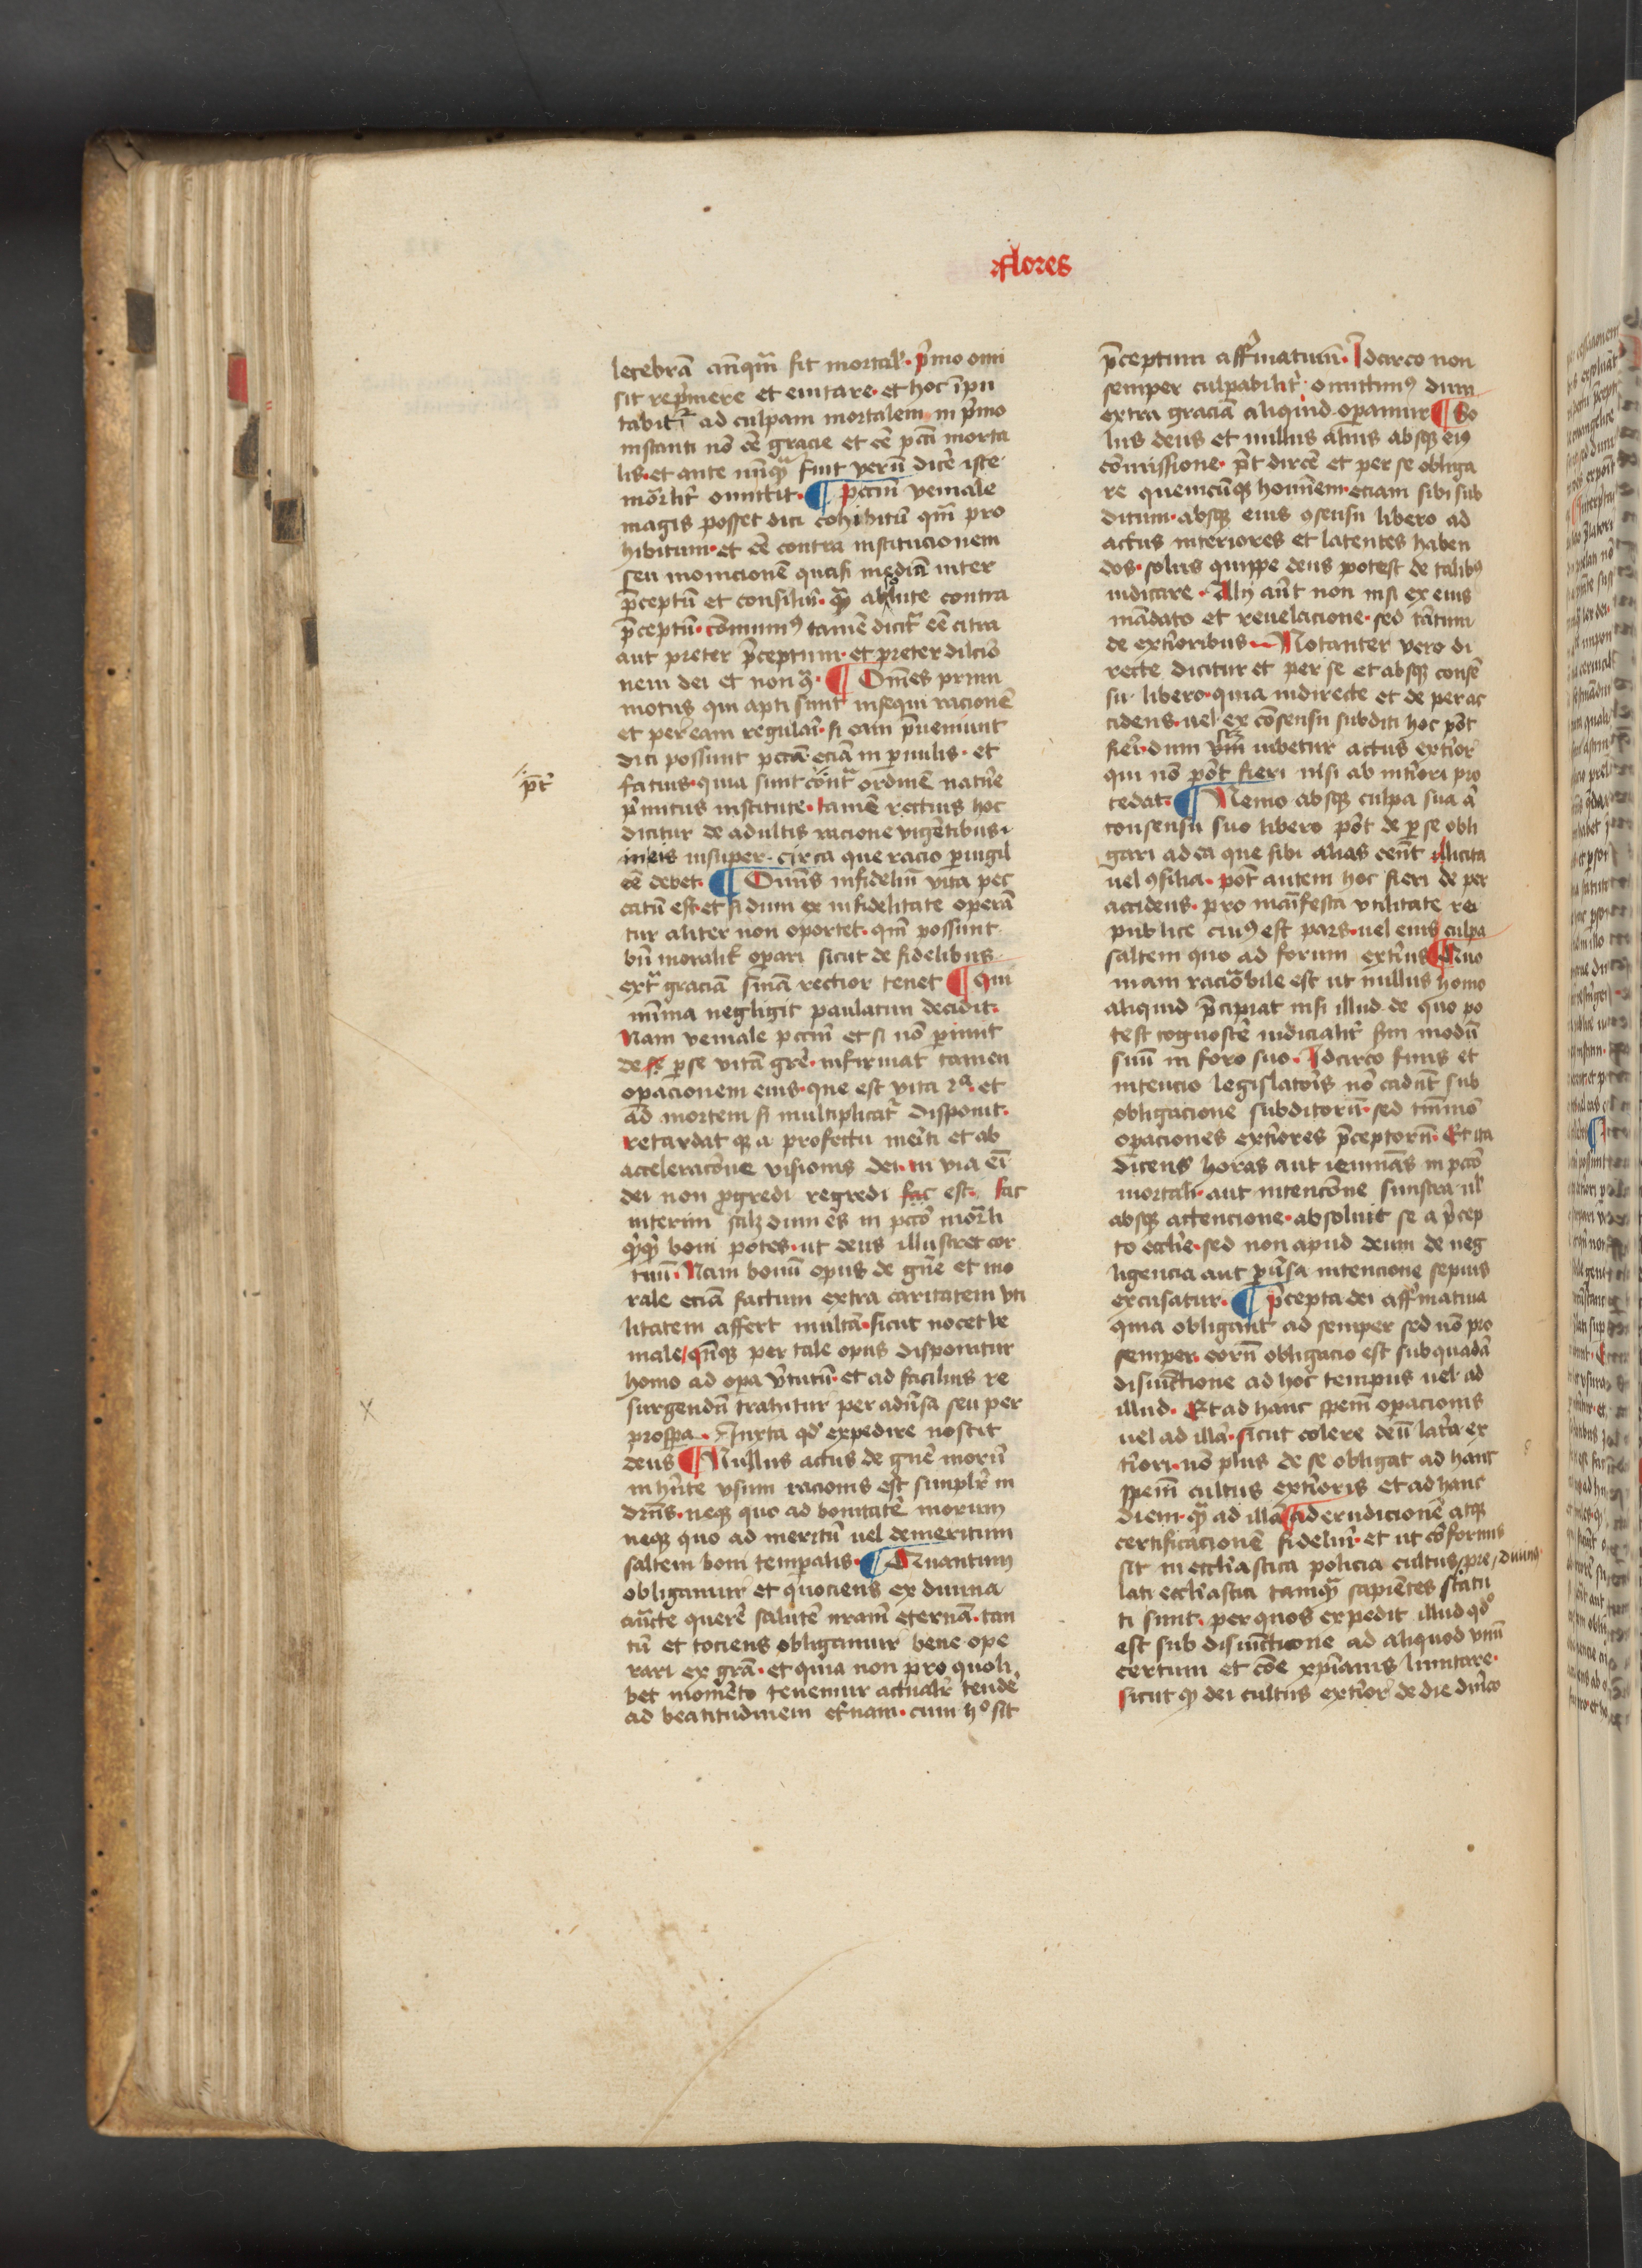 flores
lecebrā anq̄m fit mortal'· p̄mo omi
sit rep̄mere et euitare· et hoc īpu
tabit͛ ad culpam mortalem in p̄mo
instanti nō ēē gracie et ēē pcti morta
lis· et ante nūq̄ fuit verū dicē iste
mōrlit͛ omittit· ¶ Pctm̄ veniale
magis posset dici cohibitū qm̄ pro
hibitum· et ēē contra institucionem
seu monicionē quasi mediā inter
p̄ceptū et consiliū· q̄ absolute contra
p̄ceptū· cōmuni9 tamē dicit͛ ēē citra
aut preter p̄ceptum· et preter dilcō
nem dei et non q̄· ¶ Om̄es primi
motus qui apti sunt insequi racionē
et per eam regulari· si eam p̄ueniunt
dici possunt pctā eciā in p̄uulis· et
fatuis· quia sunt cont͛ ordinē nat͛e
p̄mitus institute· tamē rectius hoc
dicitur de adultis racione vigētibus·
in eis insuper· circa que racio p̄uigil
ēē debet· ¶ Om̄is infideliū vita pec
catū est· et si dum ex infidelitate operā
tur aliter non oportet· qm̄ possunt
bn̄ moralit͛ op̄ari sicut de fidelibus
ext͛ graciā sniā rectior tenet ¶ Qui
mīma negligit paulatim decidit·
Nam veniale pctm̄ et si nō p̄imit
de se p̄ se vitā gr̄e· infirmat tamen
op̄acionem eius· que est vita 2ᵃ· et
ad mortem si multiplicat͛ disponit·
retardat q̄ a profectu meriti et ab
acceleracōne visionis dei· in via eī
dei non p̄gredi regredi est· fac
interim salꝫ dum es in pctō mōrli
q̄q̄ boni potes· ut deus illustret cor
tuū· Nam bonū opus de gn̄e et mo
rale eciā factum extra caritatem vti
litatem affert multā· sicut nocet ve
niale / qn̄q̄ per tale opus disponitur
homo ad op̄a v̄tutū· et ad facilius re
surgendū trahitur per adūsa seu per
prosp̄a· Juxta qd̄ expedire noscit
deus ¶ Nullus actus de gn̄e morū
in hn̄te vsum racionis est simplr̄ in
dr̄ns· neq̄ quo ad bonitatē morum
neq̄ quo ad meritū uel demeritum
saltem boni tempalis· ¶ Quantum9
obligamur et quociens ex diuina
aucte querē salutē nr̄am eternā· tan
tū et tociens obligamur bene ope
rari ex grā· et quia non pro quoli
bet momēto tenemur actualr̄ tendē
ad beatitudinem et͛nam· cum hº sit
p̄t͛
x
p̄ceptum affirmatiuū· Idcirco non
semper culpabilit͛ omittim9 dum
extra graciā aliquid operamur ¶ So
lus deus et nullus alius absq̄ ei9
cōmissione· p̄t dircē et per se obliga
re quemcūq̄ hominem eciam sibi sub
ditum· absq̄ eius 9sensu libero ad
actus interiores et latentes haben
dos· solus quippe deus potest de talib9
iudicare· Alij aūt non nisi ex eius
mādato et reuelacione· sed tātum
de ext͛ioribus Notanter vero di
recte dicitur et per se et absq̄ consē
su libero· quia indirecte et de per ac
cidens· uel ex cōsensu subditi hoc pōt
fieri· dum iubetur actus ext͛ior
qui nō pōt fieri nisi ab int͛iori pro
cedat· ¶ Nemo absq̄ culpa sua a
consensu suo libero pōt de p̄ se obli
gari ad ea que sibi alias eēnt illicita
uel 9silia· pōt autem hoc fieri de per
accidens· pro manifesta vtilitate rei
publice cui9 est pars· uel eius culpa
saltem quo ad forum ext͛ius ¶ Quo
niam raciōbile est ut nullus homo
aliquid p̄cipiat nisi illud de quo po
test cognoscē iudicialit͛ scm̄ modū
suū in foro suo· Idcirco finis et
intencio legislator͛is nō cadūt sub
obligacione subditorū· sed tm̄mō
op̄aciones ext͛iores p̄ceptorū· Et ita
dicens horas aut ieiunās in pctō
mortali· aut intencōne sinistra ul'
absq̄ attencione· absoluit se a p̄cep
to eccl̄ie· sed non apud deum de neg
ligencia aut p̄uersa intencione sepius
excusatur· ¶ P̄cepta dei affirmatiua
quia obligant ad semper sed nō pro
semper· eorū obligacio est sub quadā
disiūctione ad hoc tempus uel ad
illud· Et ad hanc spēm op̄acionis
uel ad illā· sicut colere deū lat͛a ex
t͛iori· nō plus de se obligat ad hanc
spēm cultus ext͛ioris et ad hanc
diem· q̄ ad illā ¶ ad erudicionē atq̄
certificacionē fideliū· et ut cōformis
sit in eccl̄iastica policia cultus / pre / diuin9
lati eccl̄iastici tamq̄ sapiētes statu
ti sunt· per quos expedit illud qd̄
est sub disiūctione ad aliquod vnū
certum et cōe xp̄ianis limitare·
sicut q̄ dei cultus ext͛ior de die dn̄ico